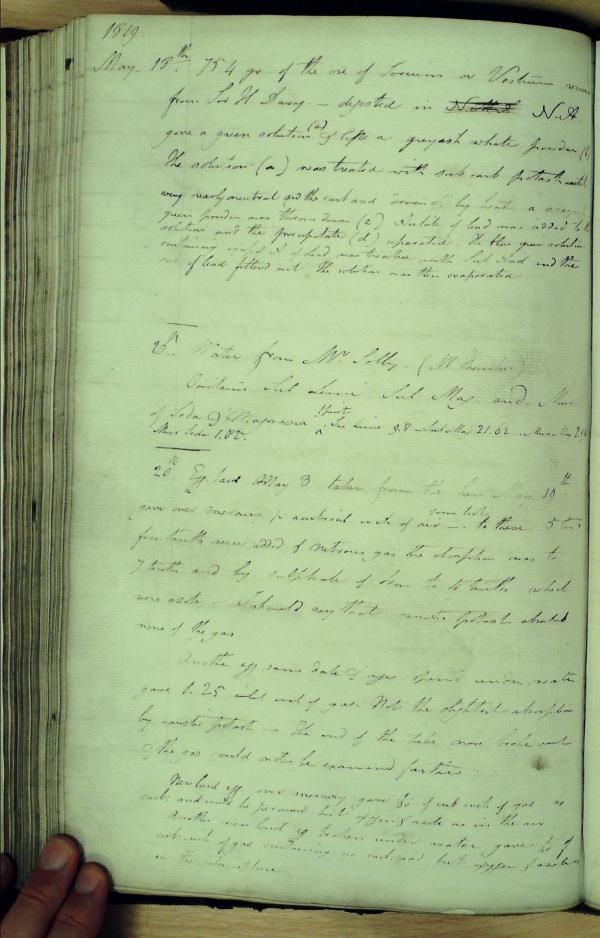 1819.
May. 18th. 75.4 gr of the ore of Sirium or Vestium
from Sir H Davy. – digested in N.A
gave a green solution (a) & left a greyish white powder (b)
The solution (a) was treated with sub carb potash
very nearly neutral and the carb acid driven off by heat a
green powder was thrown down (c) Nitrate of lead was added to the
solution and the precipitate (d) separated. The thus green solution
containing N of lead was treated with Sul Acid and the
sul of lead filtered out The solution was then evaporated
20th. Water from Mr Solly. (Mr
Contains Sul Lime Sul Mag. and Mur
of Soda & Magnesia 1 pint Sul Lime 9.8 – Sul Mag 21.62 – Mur Mag
Mur Soda 1.82.
20th Egg laid May 3 taken from the hen May 10th
gave over mercury cubical inch of air – to these 5
five tenths were added of nitrous gas the absorption was to
7 tenths and by sulphate of iron to 4 tenths which
were azote – I should say that caustic potash absorbed
none of the gas
Another egg same date & age opened under water
gave 1.25 cubl inch of gas. Not the slightest absorption
by caustic potash – The end of the tube was broke
& the gas could not be examined farther.
New laid egg over mercury gave of cub inch of gas no
carb acid could be perceived but oxygen & azote as in the air
Another new laid egg broken under water gave of
cub inch of gas containing no carb acid but oxygen & azote
in the atmosphere